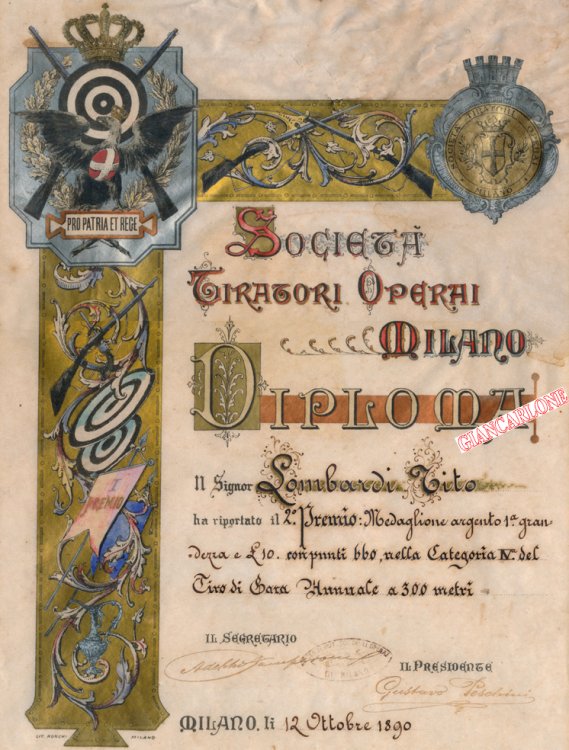 PRO PATRIA ET REGE
SOCIETÀ
TIRATORI OPERAI
MILANO
DIPLOMA
GIANCARLONE
Il Signor Lombardi Tito
ha riportato il 2º Premio: Medaglione argento 1ª gran-
dezza e £10. con punti 660, nella Categoria IV. del
Tiro di Gara Annuale a 300 metri
I
PREMIO
IL SEGRETARIO
IL PRESIDENTE
Gustavo Peschini
MILANO, li 12 Ottobre 1890
LIT. RONCHI MILANO